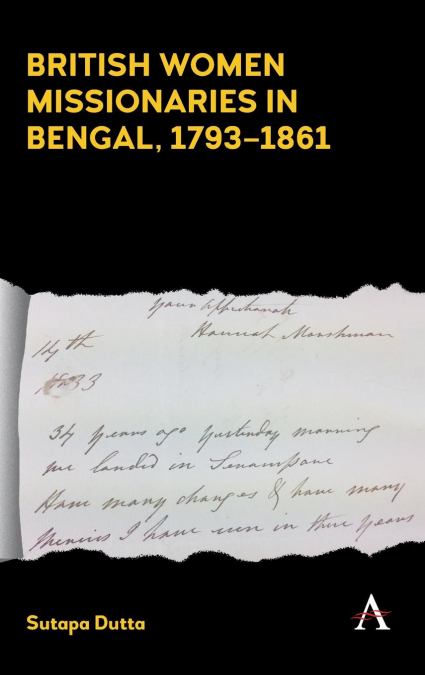 BRITISH WOMEN
MISSIONARIES IN
BENGAL, 1793–1861
Your affectionate
Hannah Marshman
14th
1833
34 years ago yesterday morning
we landed in Serampore
How many changes & how many
Mercies I have seen in these years
Sutapa Dutta
A